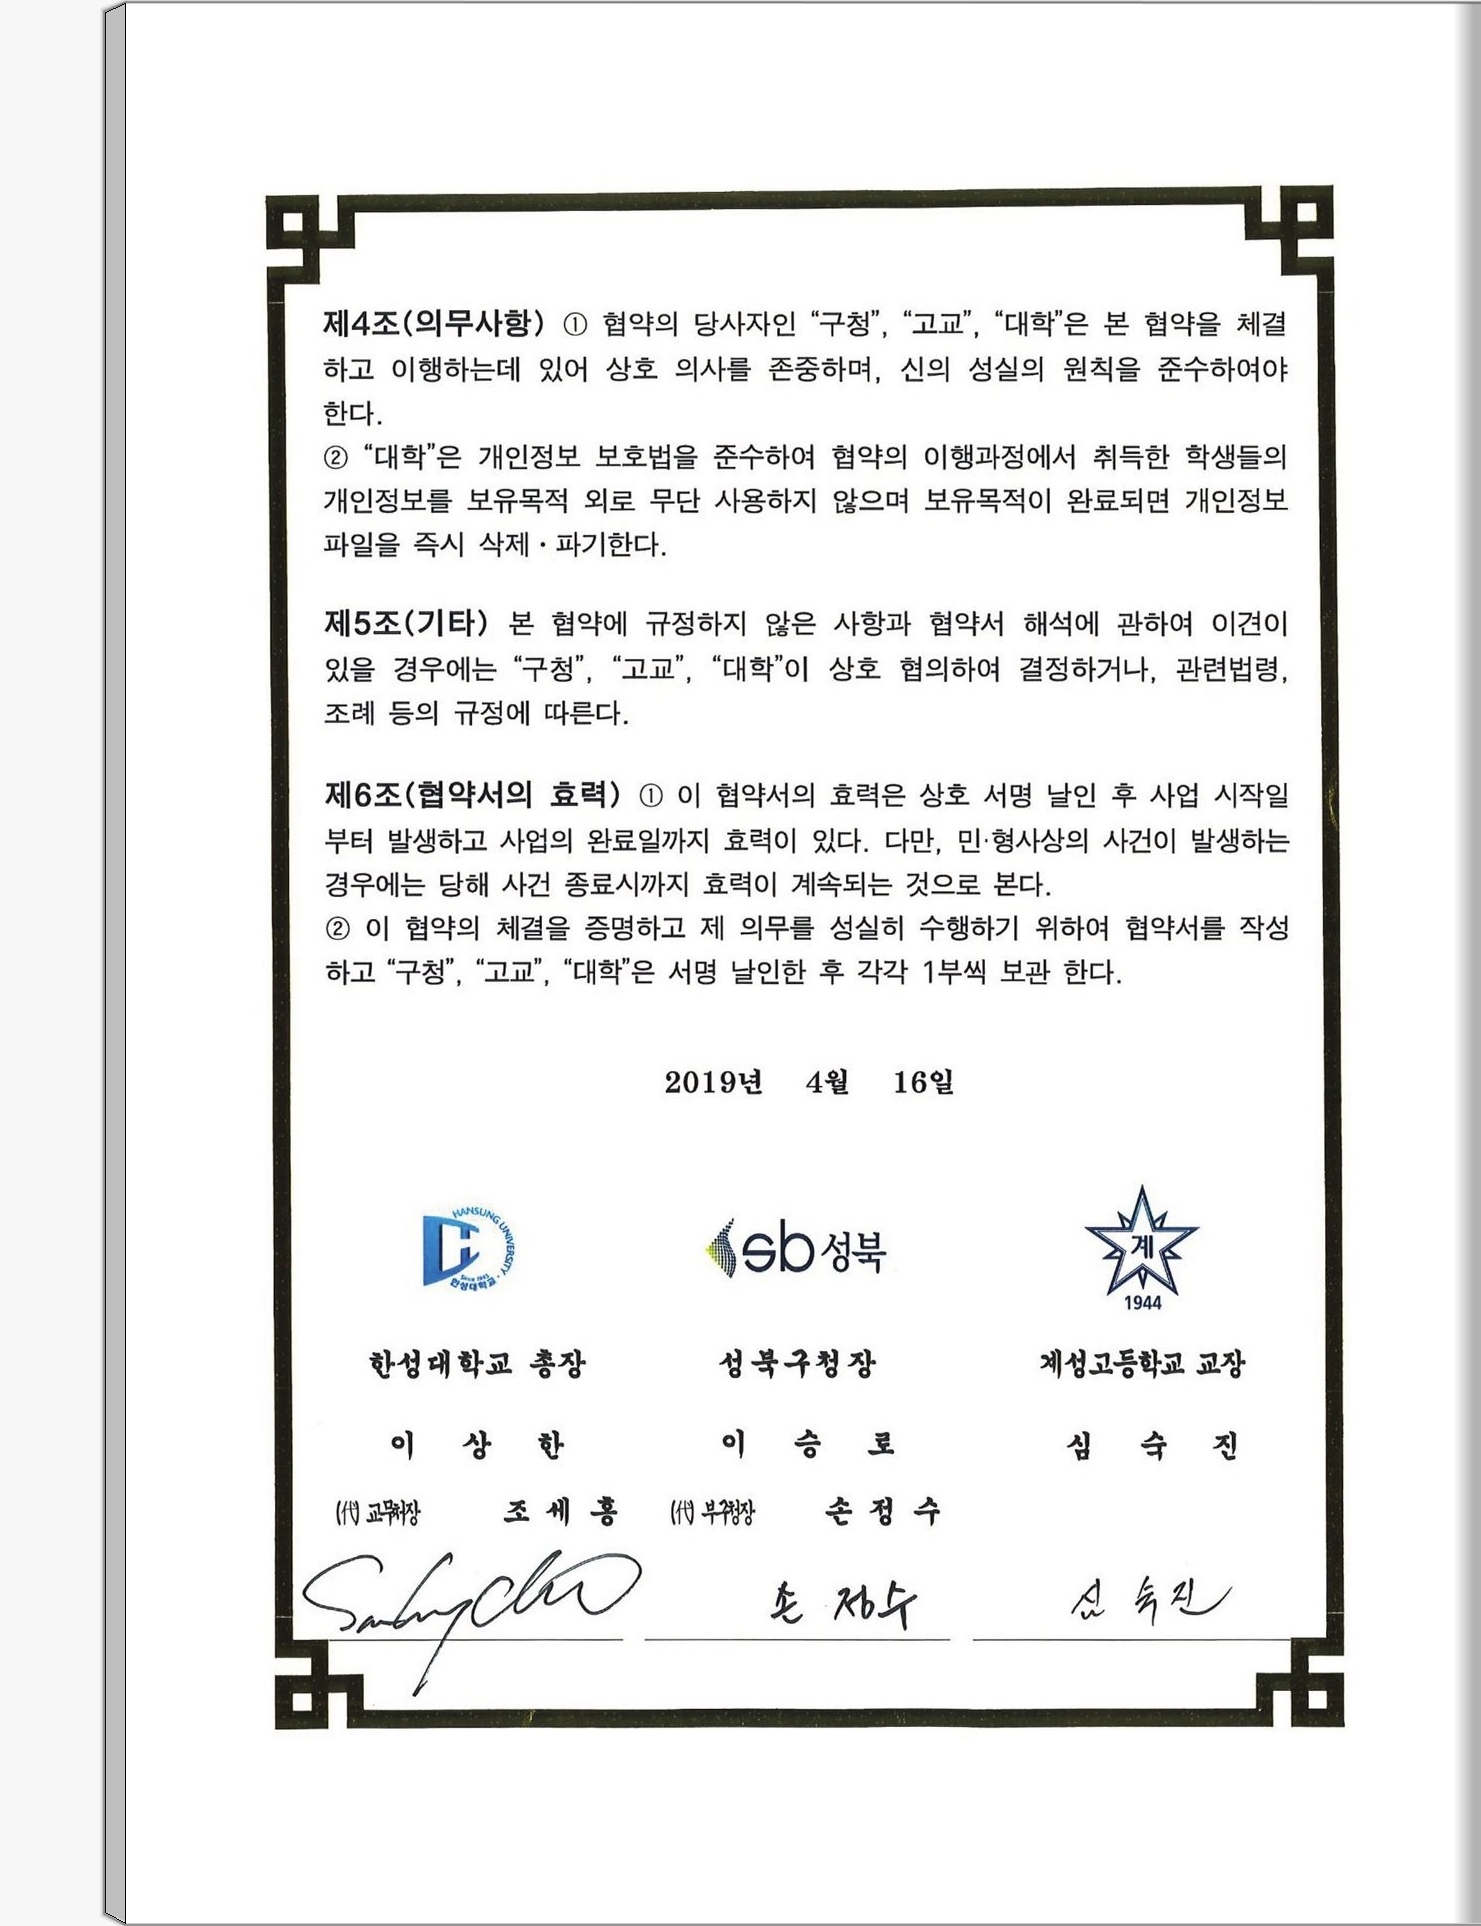 제4조(의무사항) ① 협약의 당사자인 “구청”, “고교”, “대학”은 본 협약을 체결
하고 이행하는데 있어 상호 의사를 존중하며, 신의 성실의 원칙을 준수하여야
한다.
② “대학”은 개인정보 보호법을 준수하여 협약의 이행과정에서 취득한 학생들의
개인정보를 보유목적 외로 무단 사용하지 않으며 보유목적이 완료되면 개인정보
파일을 즉시 삭제·파기한다.
제5조(기타) 본 협약에 규정하지 않은 사항과 협약서 해석에 관하여 이견이
있을 경우에는 “구청”, “고교”, “대학”이 상호 협의하여 결정하거나, 관련법령,
조례 등의 규정에 따른다.
제6조(협약서의 효력) ① 이 협약서의 효력은 상호 서명 날인 후 사업 시작일
부터 발생하고 사업의 완료일까지 효력이 있다. 다만, 민·형사상의 사건이 발생하는
경우에는 당해 사건 종료시까지 효력이 계속되는 것으로 본다.
② 이 협약의 체결을 증명하고 제 의무를 성실히 수행하기 위하여 협약서를 작성
하고 “구청”, “고교”, “대학”은 서명 날인한 후 각각 1부씩 보관 한다.
2019년 4월 16일
HANSUNG UNIVERSITY Since 1945 한성대학교
sb 성북
계
1944
한성대학교 총장 성북구청장 계성고등학교 교장
이 상 한 이 승 로 심 숙 진
(代) 교무처장 조 세 홍 (代) 부구청장 손 정 수
손 정수 심 숙진